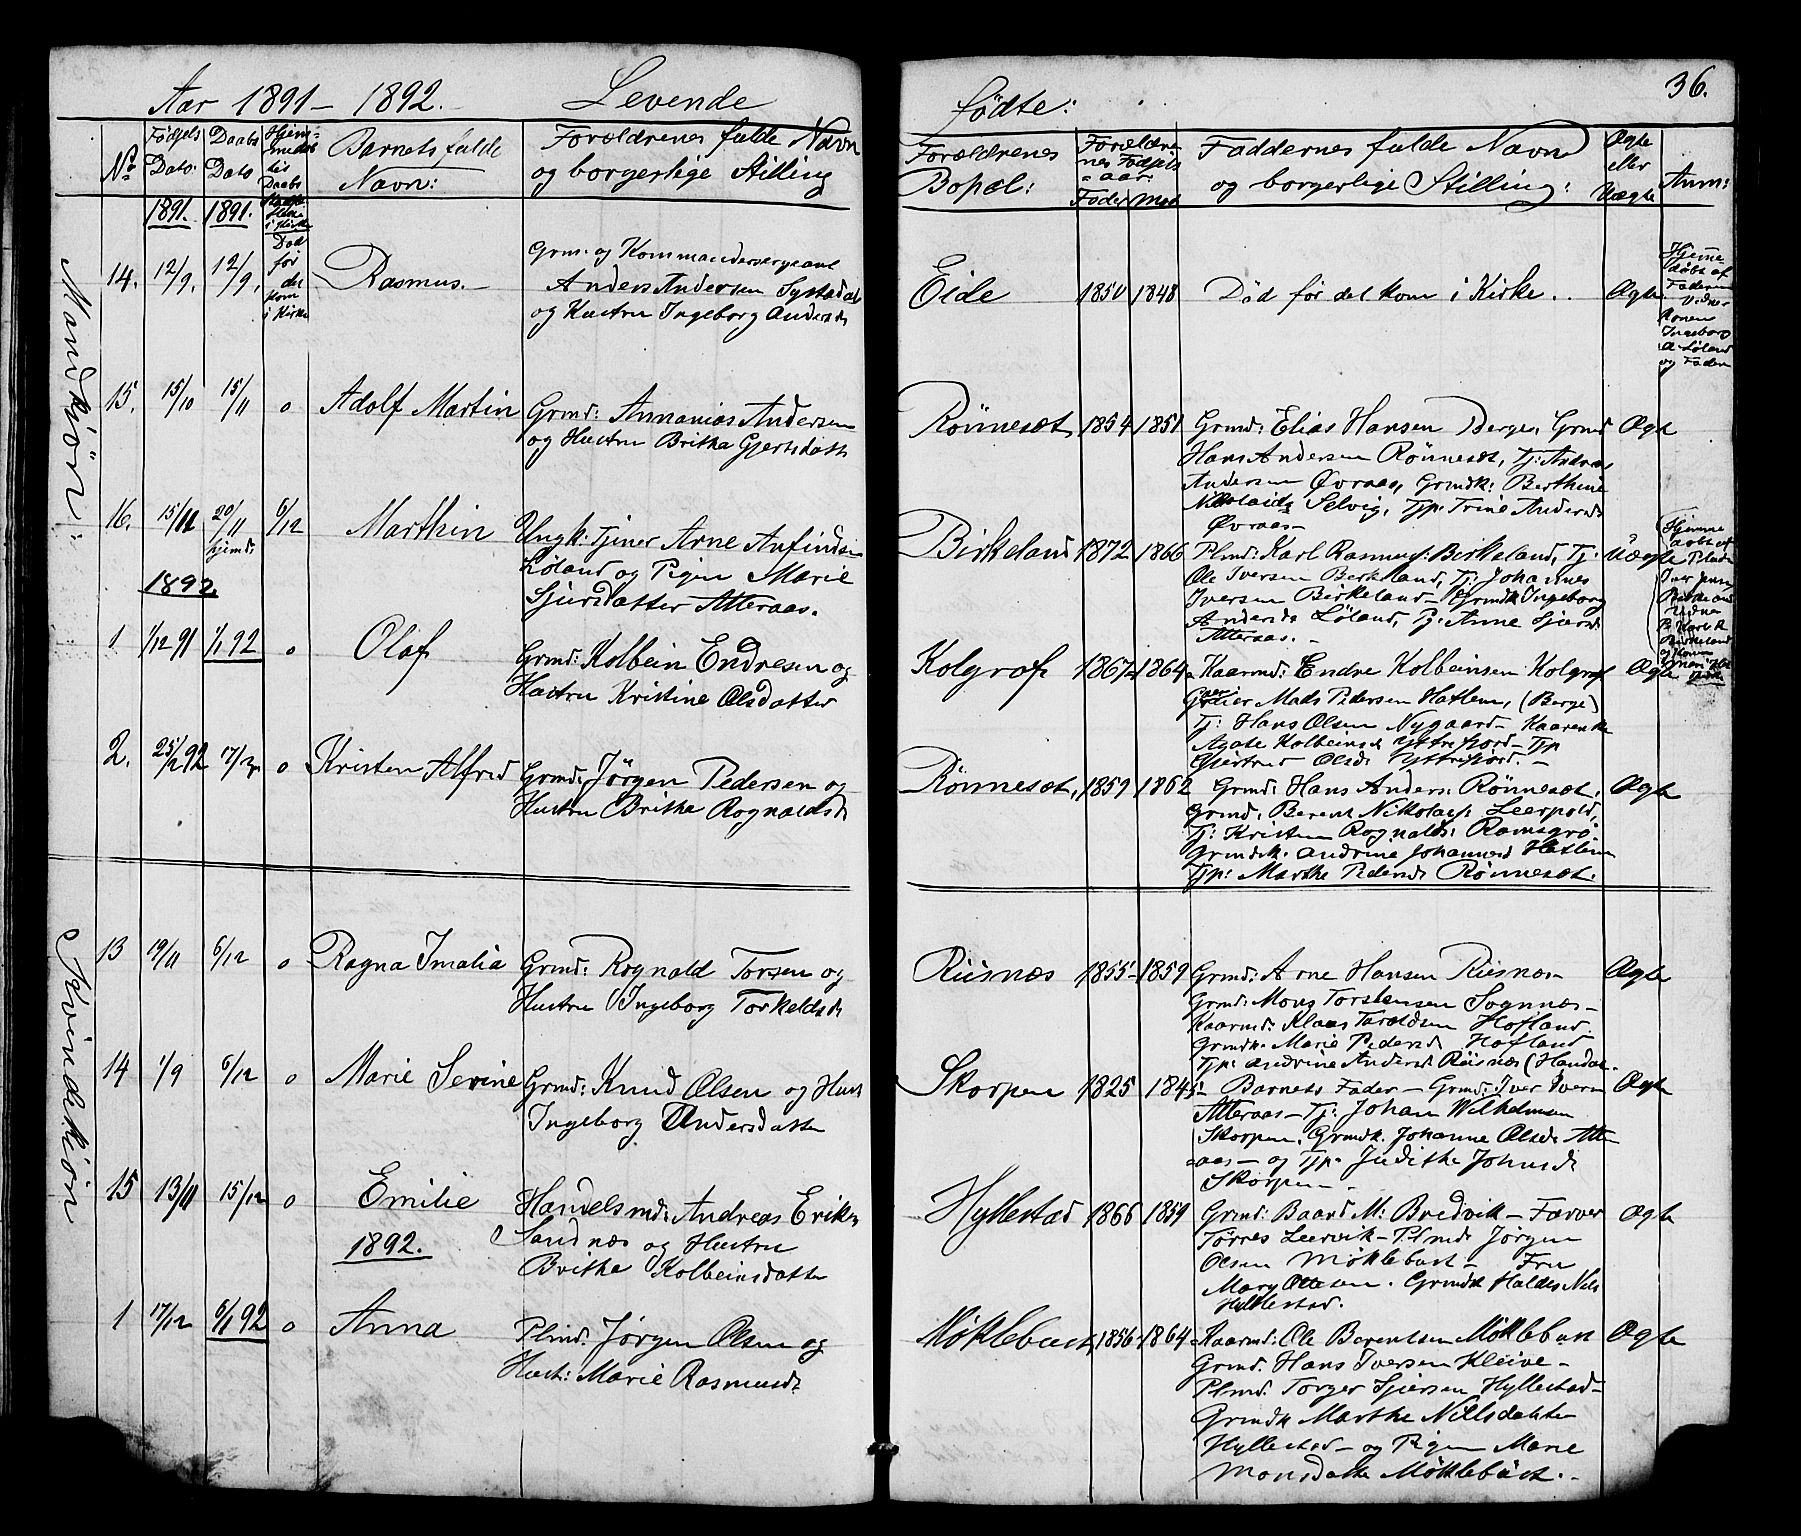 36.
Aar 1891 – 1892. Levende fødte:
No. Fødsels Dato: Daabs Dato Barnets fulde Navn: Forældrenes fulde Navn og borgerlige Stilling Forældrenes Bopæl: Forældrenes Fødselsaar Fader Mod Faddernes fulde Navn og borgerlige Stilling: Ægte eller Uægte Anm:
1891. 1891.
Mandkjøn:
14. 12/9. 12/9. Død før det kom i Kirke Rasmus. –
Grm. og Kommandersergeant
Anders Andersen Systadal
og Hustru Ingeborg Andersd:
Eide 1850 1848 Død før det kom i Kirke. . Ægte
Hjemmedøbt af
Faderen
Vidner
Konen
Ingeborg
A. Løland
og Faderen
15. 15/10 15/11 o Adolf Martin
Grmd: Annanias Andersen
og Hustru Britha Gjertsdatt
Rönnesæt 1854 1851 Ægte
Grmd: Elias Hansen Berge, Grmd
Hans Andersen Rönnesæt, Tj: Andreas
Andersen Øvraas, Grmdk: Berthine
Nikolaisd: Selvig, Tjp: Trine Andersd:
Øvraas –
16. 20/11 hjemd: 6/12 Marthin
Ungk: Tjener Arne Anfindsen
Løland og Pigen Marie
Sjursdatter Atteraas.
Birkeland 1872 1866 Uægte
Plmd: Karl Rasmus: Birkeland, Tj:
Ole Iversen Birkeland, Tj: Johannes
Iversen Birkeland – Grmdk Ingeborg
Andersd: Løland, Tj: Anne Sjursd:
Atteraas. –
1892.
1 1/12 91 1/1 92 o Olaf
Grmd: Kolbein Endresen og
Hustru Kristine Olsdatter
Kolgrof 1867 1864 Ægte
Kaarmd: Endre Kolbeinsen Kolgrof
Mads Pedersen Hatlem, (Berge)
Tj: Hans Olsen Nygaard – Kaarenke
Agate Kolbeinsd Yttrefjord – Tjp
Gjertrud Olsd: Yttrefjord. –
2. 17/3 o Kristen Alfred
Grmd: Jörgen Pedersen og
Hustru Brithe Rognaldsd:
Rönnesæt, 1859 1862 Ægte
Grmd: Hans Anders: Rönnesæt,
Grmd: Berent Nikolays: Leerpold,
Tj: Kristen Rognalds: Ramsgrø
Grmdk: Andrine Johannesd Hatlem
Tjp: Marthe Pedersd Rönnesæt.
Kvindekön
13 19/11 6/12 o Ragna Imalia
Grmd: Rognald Torsen og
Hustru Ingeborg Torkeldsd:
Riisnæs 1855 1859 Ægte
Grmd: Arne Hansen Riisnæs –
Grmd: Mons Torstensen Sognnæs –
Kaarmd: Klaas Taraldsen Hofland
Grmdk. Marie Pedersd Hofland
Tjp: Andrine Andersd Riisnæs
14 1/9 6/12 o Marie Sevine
Grmd: Knud Olsen og Hust
Ingeborg Andersdatter
Skorpen 1825 1845 Ægte
Barnets Fader – Grmd: Iver Ivers
Atteraas – Tj: Johan Wilhelmsen
Skorpen, Grmdk. Johanne Olsd: Atte-
raas – og Tjp: Judithe Johnsd:
Skorpen –
15 13/11 15/12 o Emilie
Handelsmd: Andreas Eriks
Sandnæs og Hustru
Brithe Kolbeinsdatter
Hyllestad 1866 1859 Ægte
Grmd: Baard M: Bredvik – Farver
Torres Leervik – Plmd: Jörgen
Olsen Möklebust – Fru
Mary Ottesen. Grmdk Haldis Nils
Hyllestad.
1892.
1 17/12 6/1 92 o Anna
Plmd. Jörgen Olsen og
Hust: Marie Rasmusd:
Möklebust, 1856 1864 Ægte
Kaarmd: Ole Berentsen Möklebust
Grmd. Hans Iversen Kleive –
Plmd: Torger Sjursen Hyllestad –
Grmdk Marthe Nillsdatter
Hyllestad – og Pigen Marie
Monsdatte Möklebust. –